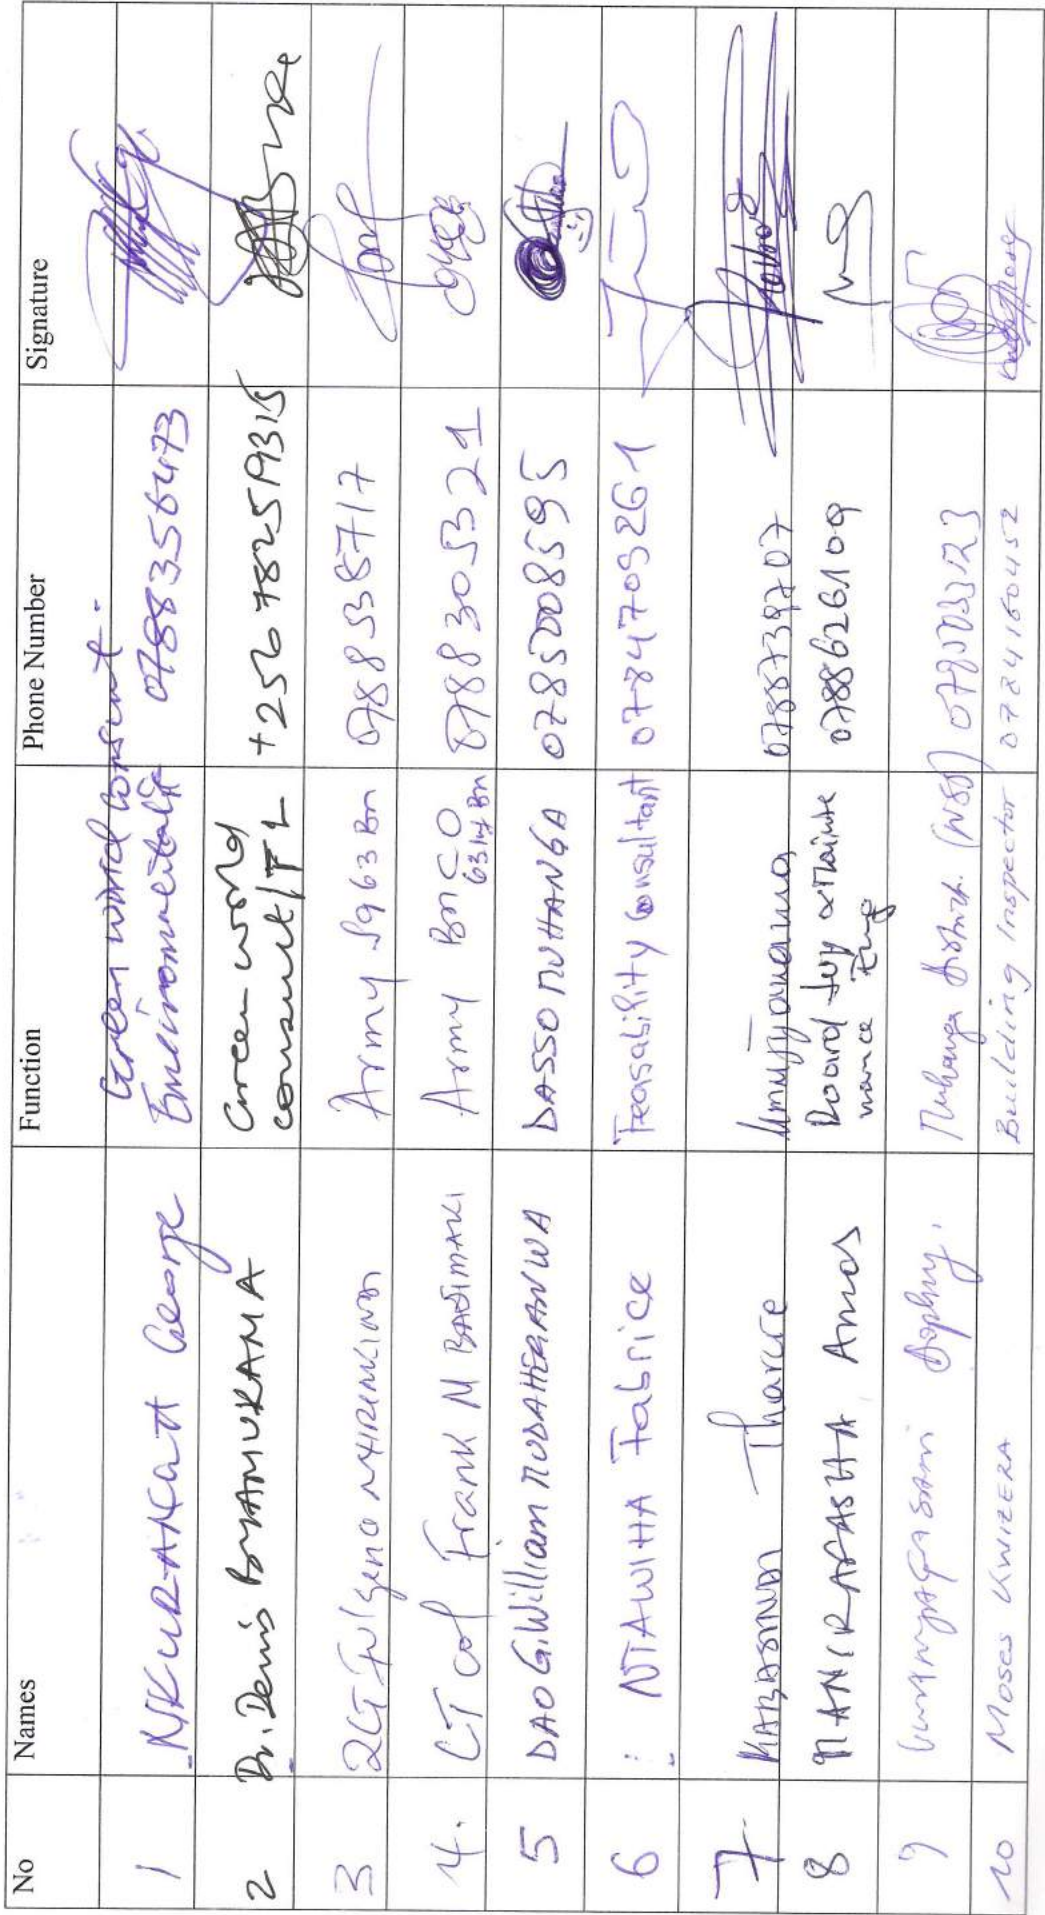 No Names Function Phone Number Signature
1 NKURANGA George Green world consult. Environmentalist 0788356473
2 Dr. Denis BYAMUKAMA Green world consult/TL +256 782519315
3 2LT Fulgence Army S9 63 Bn 0788538717
4. LT Col Frank M BAGIMAKI Army Bn CO 63 Inf Bn 0788305321
5 DAO G. William MUDAHERANWA DASSO MUHANGA 0785008595
6 : NTAWIHA Fabrice Feasability Consultant 0784709261
7 Tharcre Umujyanama 0788739707
8 MANIRAFASHA Amos Road Maintenance Eng 0788626109
9 Muhanga
10 Moses KWIZERA Building Inspector 0784160452